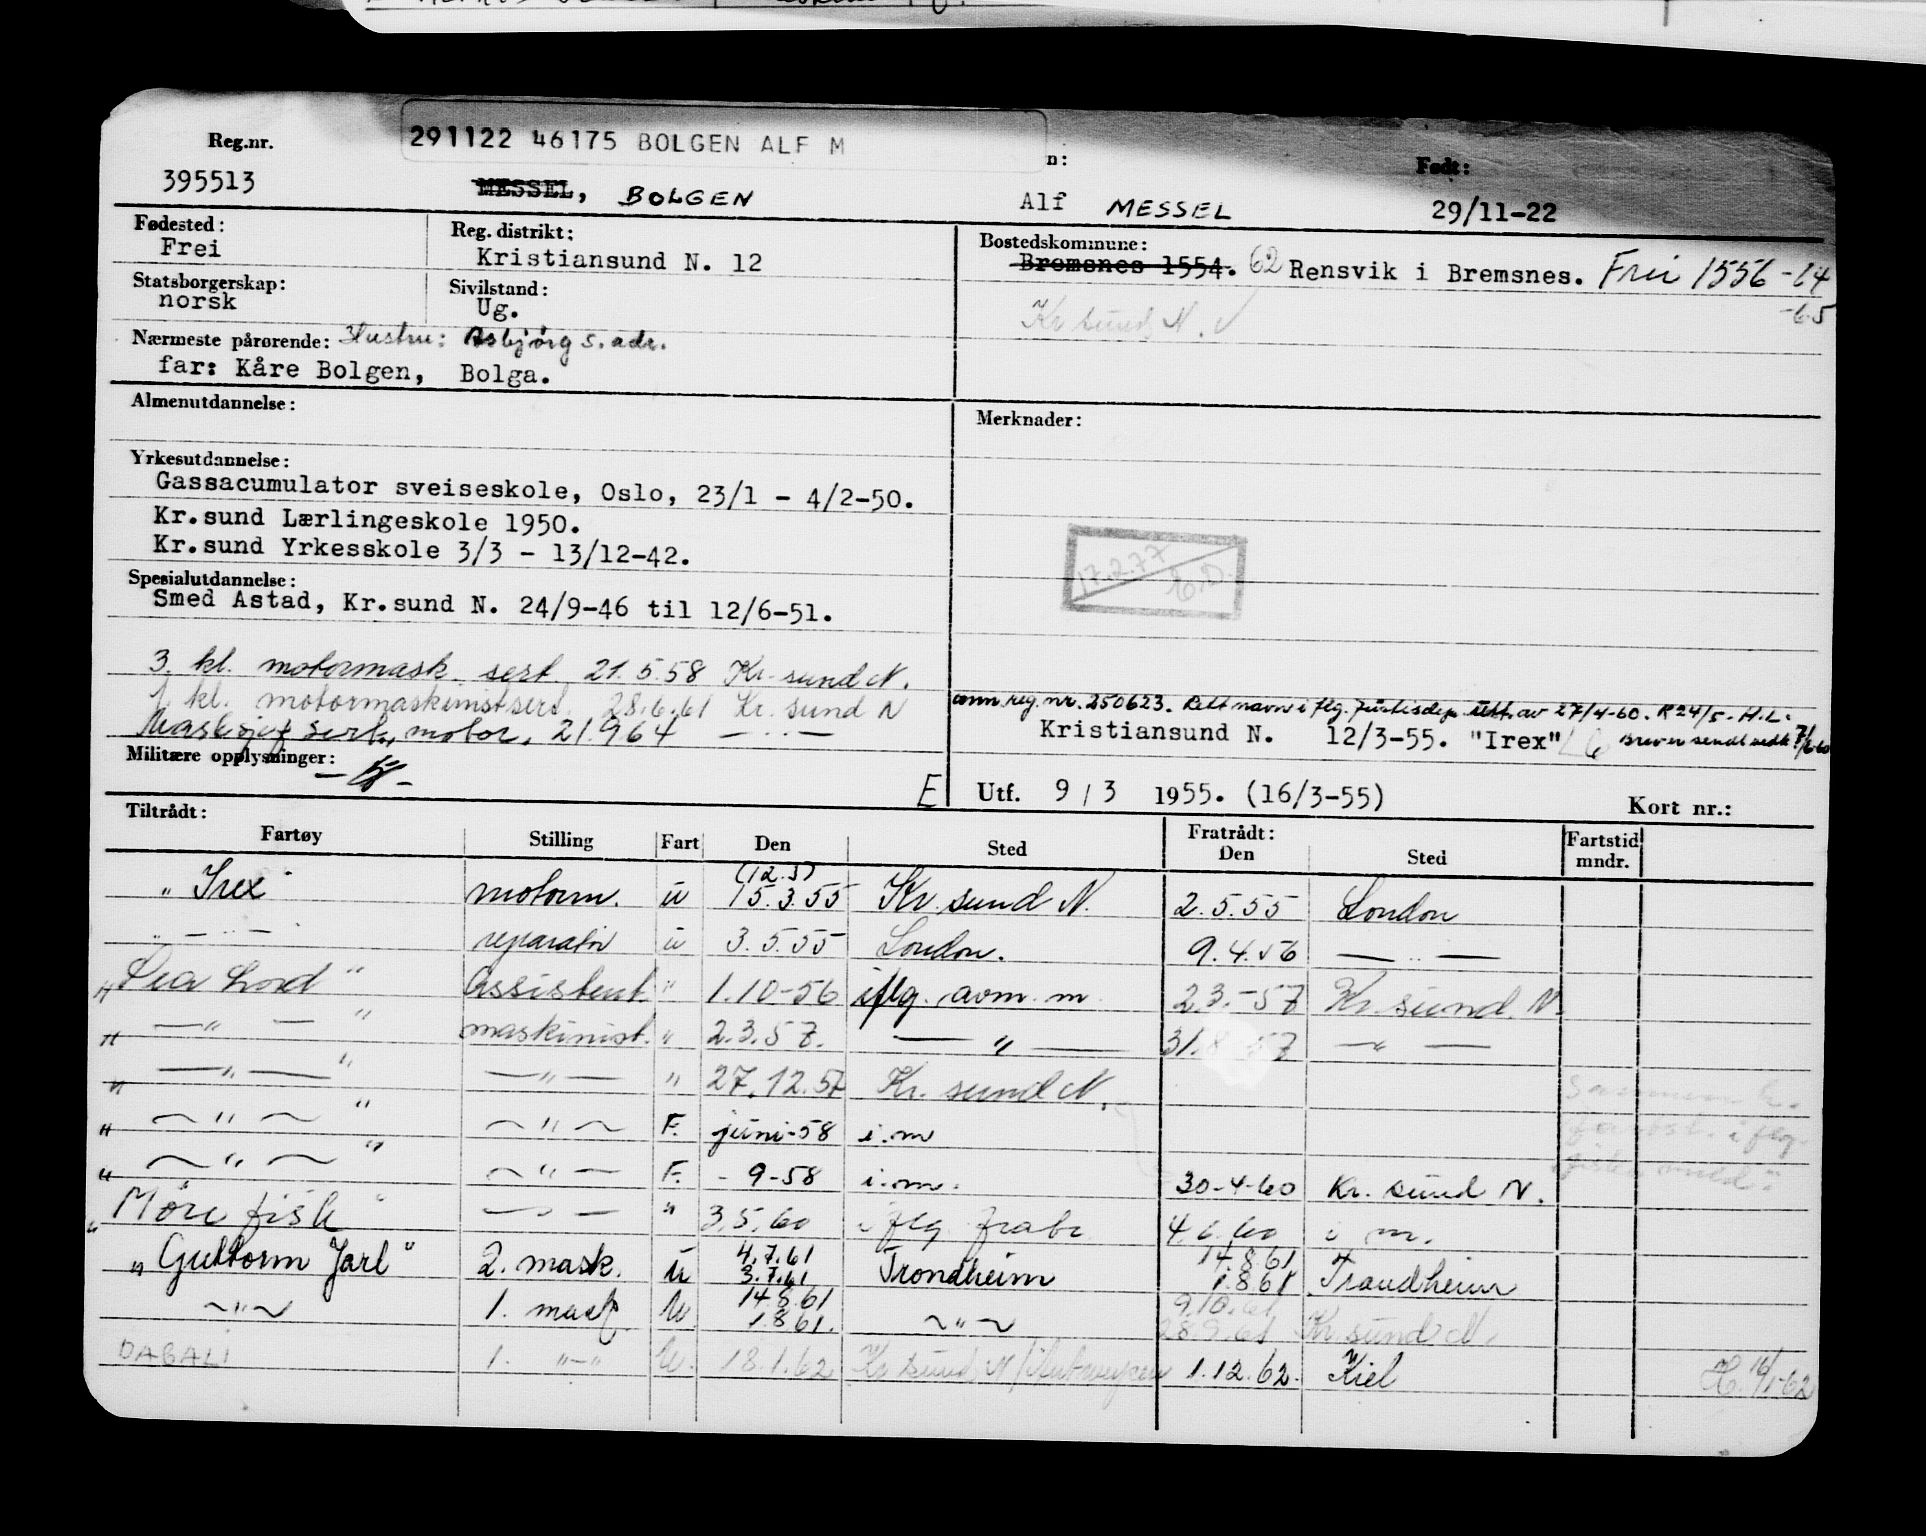 Reg.nr. 291122 46175 BOLGEN ALF M n: Født:
395513 MESSEL, BOLGEN Alf MESSEL 29/11-22
Fødested: Reg. distrikt: Bostedskommune:
Frei Kristiansund N. 12 Bremsnes 1554. 62 Rensvik i Bremsnes. Frei 1556 -64
-65
Statsborgerskap: Sivilstand:
norsk Ug. Kr sund N.
Nærmeste pårørende: Hustru: Asbjørg s. adr.
far: Kåre Bolgen, Bolga.
Almenutdannelse: Merknader:
Yrkesutdannelse:
Gassacumulator sveiseskole, Oslo, 23/1 - 4/2-50.
Kr.sund Lærlingeskole 1950.
Kr.sund Yrkesskole 3/3 - 13/12-42.
17.2.77
Spesialutdannelse:
Smed Astad, Kr.sund N. 24/9-46 til 12/6-51.
3. kl. motormask sert 21.5.58 Kr. sund N.
1 kl. motormaskinistsert. 28.6.61 Kr. sund N
Masksjef sert., motor, 21.964 — " —
ann. reg. nr. 250623. Rett navn i flg. Justisdep. av 27/4-60. R 24/5. H.L.
Kristiansund N. 12/3-55. "Irex" Brev er sendt
Militære opplysninger:
E Utf. 9 / 3 1955. (16/3-55) Kort nr.:
Tiltrådt: Fratrådt:
Fartøy Stilling Fart Den Sted Den Sted Fartstid mndr.
(12.3)
"Irex" motorm. u 15.3.55 Kr. sund N. 2.5.55 London
— " — reparatør u 3.5.55 London. 9.4.56 — " —
"Sea Lord" Assistent " 1.10-56 iflg. avm. m. 2.3.-57 Kr. sund. N.
" — " — " maskinist. " 2.3.57. — " — 31.8.57 — " —
" — " — " — " — " 27.12.57 Kr. sund N.
" — " — " — " — F. juni-58 i.m
" — " — " — " — F. - 9-58 i.m. 30-4-60 Kr. sund N.
"Møre fisk" — " — " 3.5.60 i flg. 4.6.60 i m.
4.7.61 14.8.61
"Guttorm Jarl" 2. mask. u 3.7.61 Trondheim 1.861 Trondheim
14.8.61 9.10.61
— " — 1. mask. u 1.861. — " — 28.9.61 Kr sund N.
DAGALI 1. — " — U. 18.1.62 Kr sund N/Antwerpen 1.12.62. Kiel H. 16/1-62